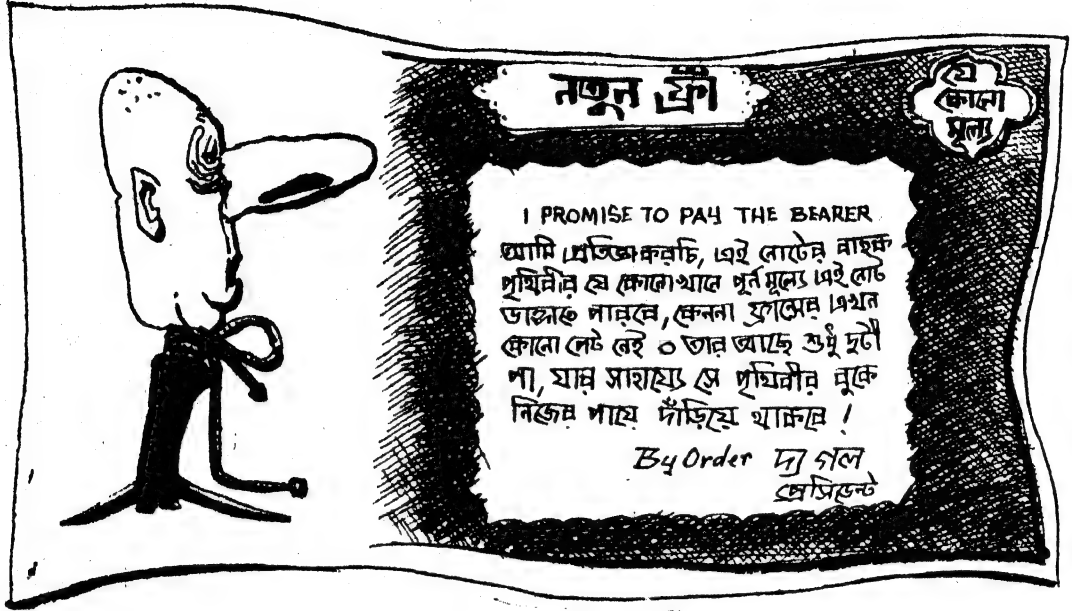 নতুন ফ্রাঁ
যে
কোনো
মূল্য
I PROMISE TO PAY THE BEARER
আমি প্রতিজ্ঞা করচি, এই নোটের বাহক
পৃথিবীর যে কোনোখানে পূর্ন মূল্যে এই নোট
ভাঙ্গাতে পারবে, কেননা ফ্রান্সের এখন
কোনো পেট নেই ০ তার আছে শুধু দুটী
পা, যার সাহায্যে সে পৃথিবীর বুকে
নিজের পায়ে দাঁড়িয়ে থাকবে !
By Order দ্য গল
প্রেসিডেন্ট